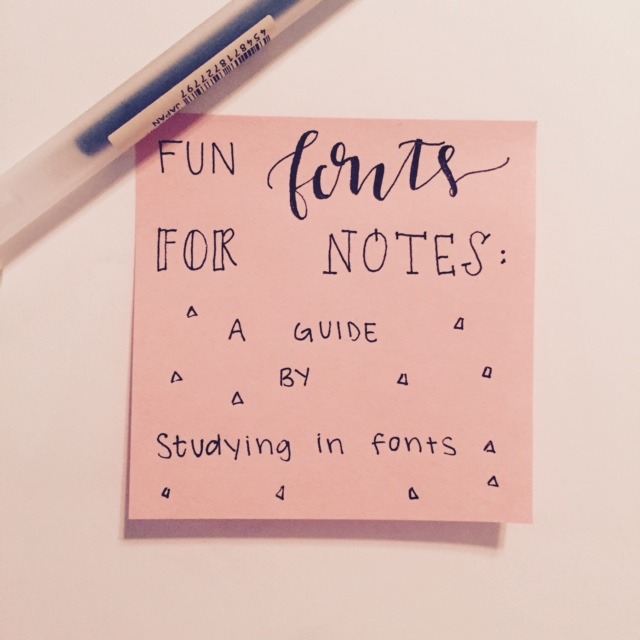 4548718727797
JAPAN
FUN fonts
FOR NOTES:
A GUIDE
BY
Studying in fonts